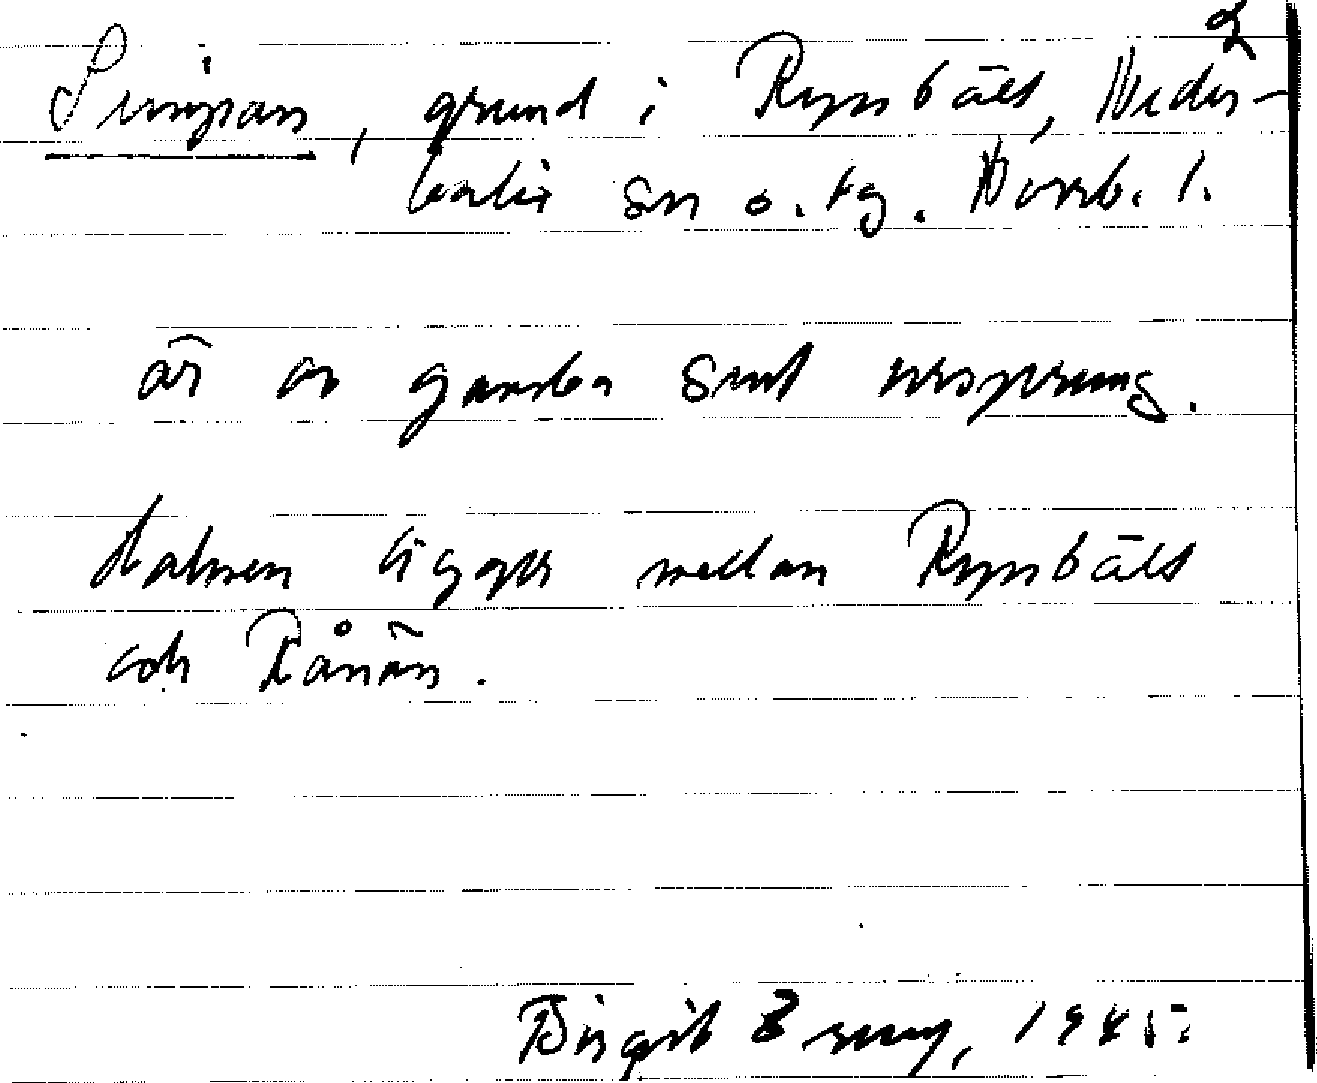 2
Simpan, grund i Rymbält, Neder-
kalix sn o. tg. Norrb. l.
är av ganska sent ursprung.
Holmen ligger mellan Rymbält
och Rånön.
Birgit 1945.